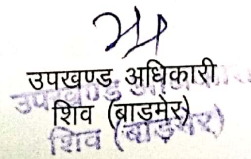 उपखण्ड अधिकारी
शिव (बाडमेर)
उपखण्ड अधिकारी
शिव (बाड़मेर)